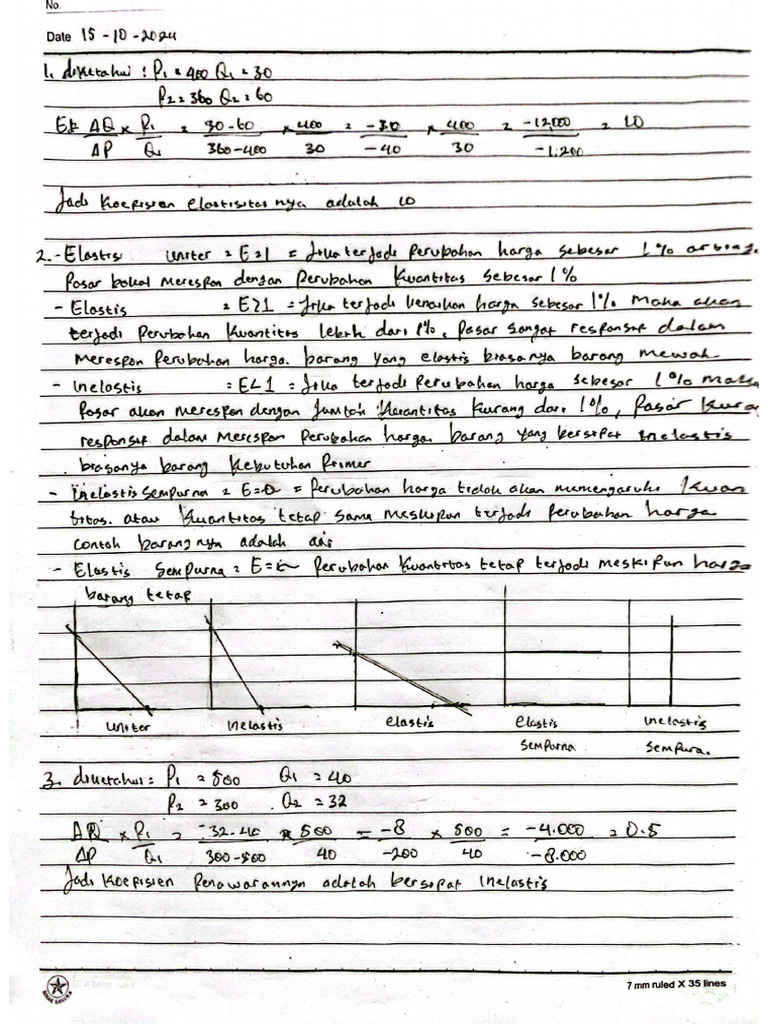 No.
Date 15-10-2024
1. diketahui : P1 = 400 Q1 = 30
P2 = 360 Q2 = 60
Ek ΔQ/ΔP × P1/Q1 = 30-60/360-400 × 400/30 = -30/-40 × 400/30 = -12,000/-1.200 = 10
Jadi koepisien elastisitas nya adalah 10
2. - Elastis uniter = E=1 = Jika terjadi Perubahan harga sebesar 1%
Pasar bakal merespon dengan Perubahan kuantitas sebesar 1%
- Elastis = E>1 = Jika terjadi kenaikan harga sebesar 1% maka akan
terjadi Perubahan kuantitas lebih dari 1%, Pasar sangat responsip dalam
merespon Perubahan harga. barang yang elastis biasanya barang mewah
- Inelastis = E<1 = Jika terjadi Perubahan harga sebesar 1% maka
Pasar akan merespon dengan Jumlah kuantitas kurang dari 1%, Pasar kura
responsip dalam merespon Perubahan harga. barang yang bersipat inelastis
biasanya barang kebutuhan Primer
- Inelastis Sempurna = E=0 = Perubahan harga tidak akan memengaruhi kuan
titas. atau kuantitas tetap sama meskipun terjadi Perubahan harga
contoh barangnya adalah air
- Elastis Sempurna = E=~ Perubahan kuantitas tetap terjadi meskipun harga
barang tetap
uniter inelastis elastis elastis inelastis
Sempurna Sempura.
3. diketahui = P1 = 500 Q1 = 40
P2 = 300 Q2 = 32
ΔQ/ΔP × P1/Q1 = 32-40/300-500 × 500/40 = -8/-200 × 500/40 = -4.000/-8.000 = 0.5
Jadi koepisien Penawarannya adalah bersipat inelastis
7 mm ruled X 35 lines